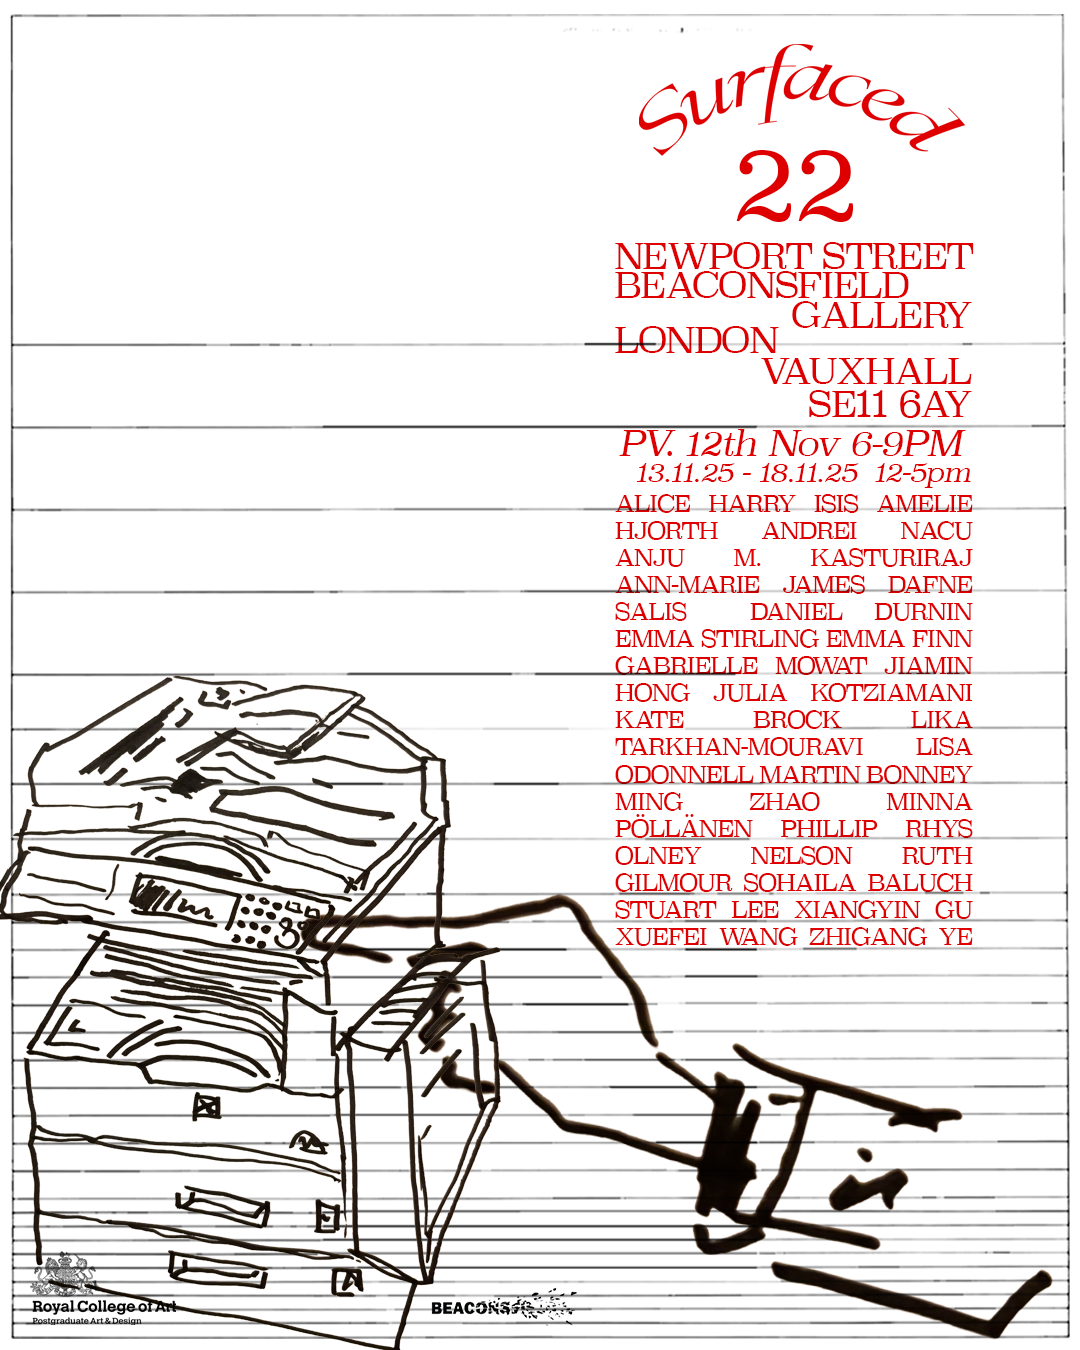 Surfaced
22
NEWPORT STREET
BEACONSFIELD
GALLERY
LONDON
VAUXHALL
SE11 6AY
PV. 12th Nov 6-9PM
13.11.25 - 18.11.25 12-5pm
ALICE HARRY ISIS AMELIE
HJORTH ANDREI NACU
ANJU M. KASTURIRAJ
ANN-MARIE JAMES DAFNE
SALIS DANIEL DURNIN
EMMA STIRLING EMMA FINN
GABRIELLE MOWAT JIAMIN
HONG JULIA KOTZIAMANI
KATE BROCK LIKA
TARKHAN-MOURAVI LISA
ODONNELL MARTIN BONNEY
MING ZHAO MINNA
PÖLLÄNEN PHILLIP RHYS
OLNEY NELSON RUTH
GILMOUR SOHAILA BALUCH
STUART LEE XIANGYIN GU
XUEFEI WANG ZHIGANG YE
Royal College of Art
Postgraduate Art & Design